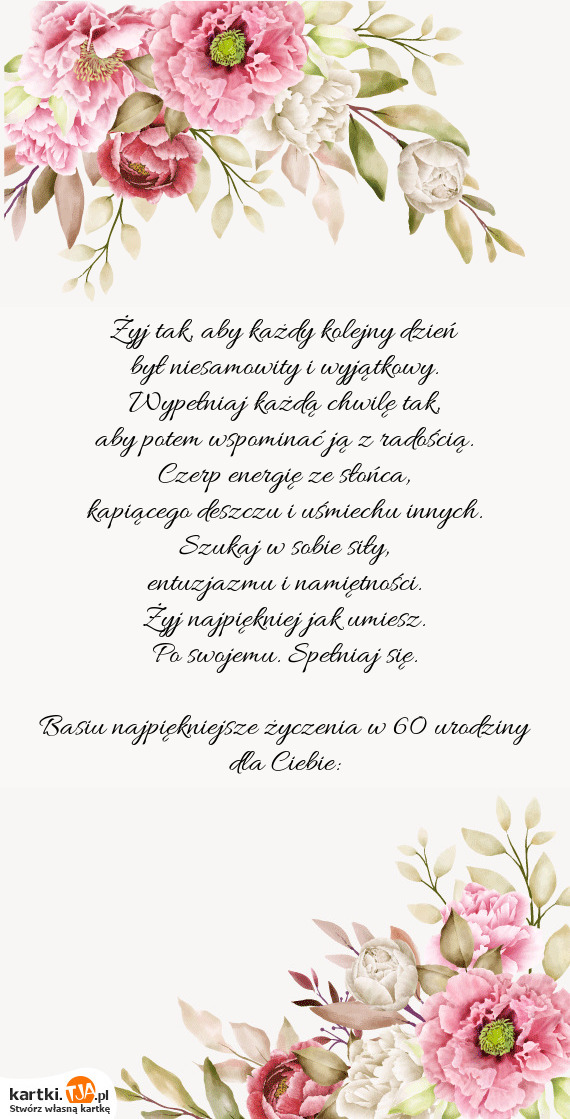 Żyj tak, aby każdy kolejny dzień
był niesamowity i wyjątkowy.
Wypełniaj każdą chwilę tak,
aby potem wspominać ją z radością.
Czerp energię ze słońca,
kapiącego deszczu i uśmiechu innych.
Szukaj w sobie siły,
entuzjazmu i namiętności.
Żyj najpiękniej jak umiesz.
Po swojemu. Spełniaj się.
Basiu najpiękniejsze życzenia w 60 urodziny
dla Ciebie:
kartki.TJA.pl
Stwórz własną kartkę